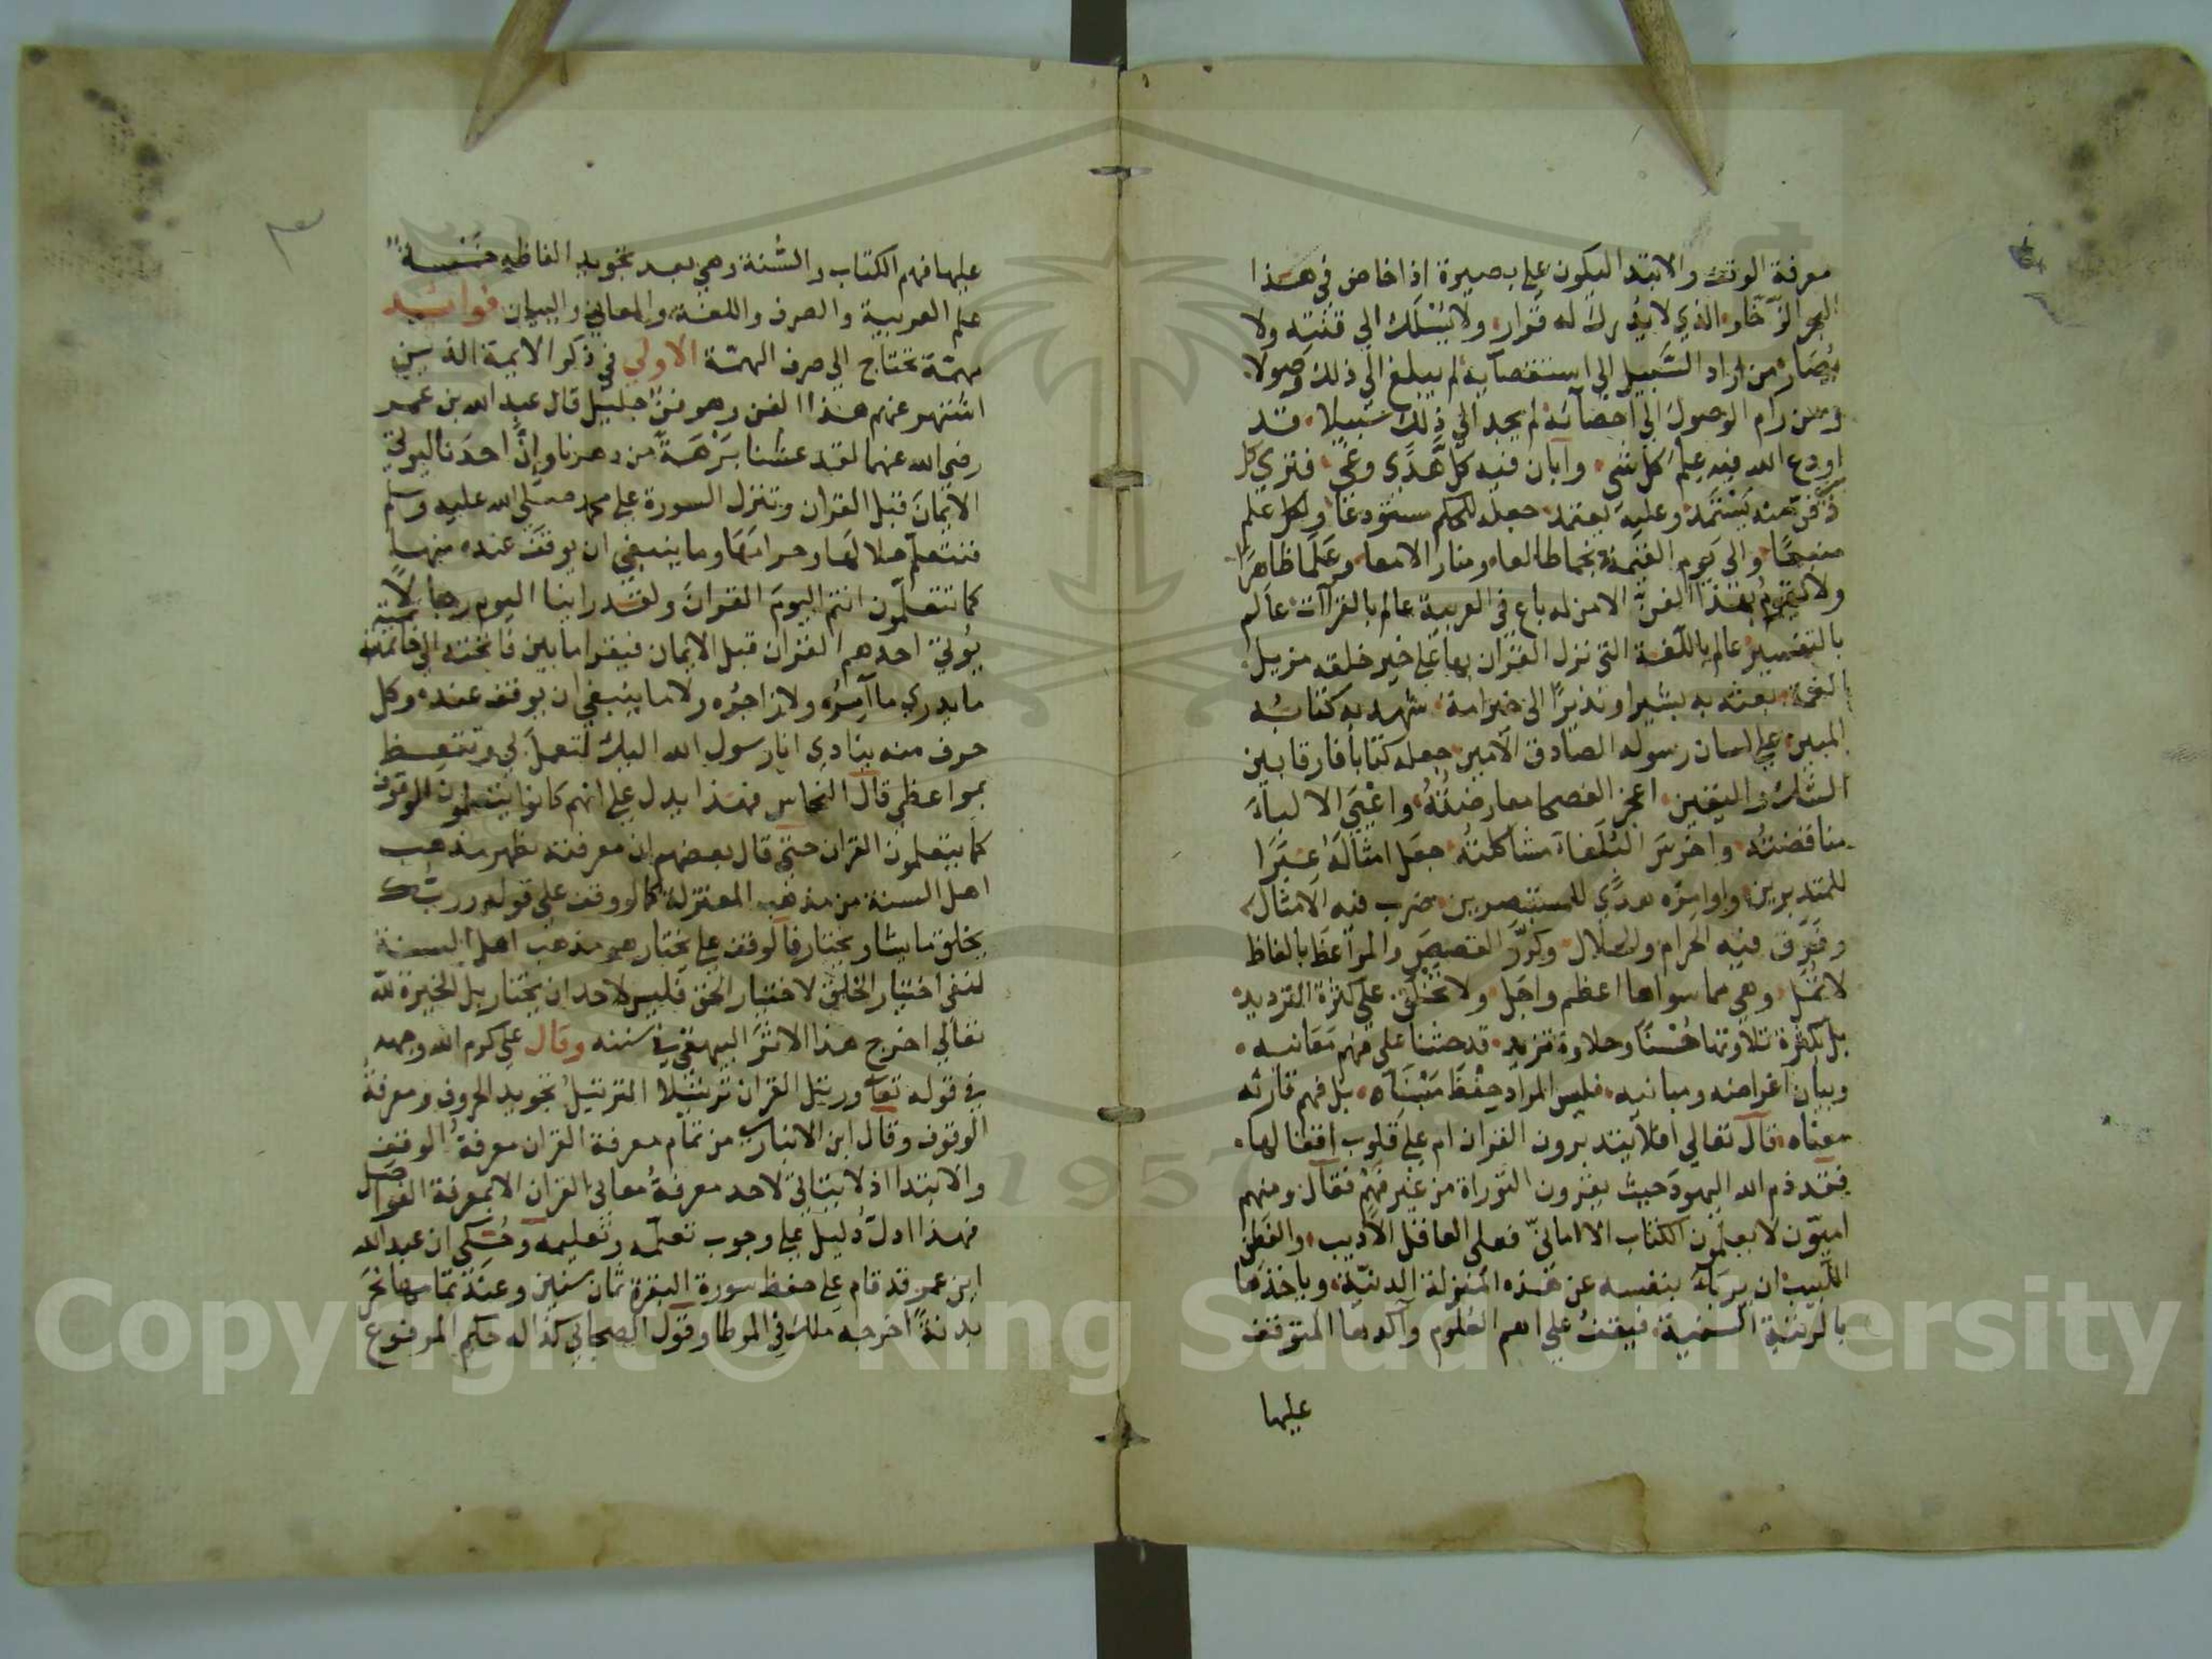 معرفة الوقف والابتدا ليكون على بصيرة اذا خاض في هذا
البحر الزخّار الذي لا يُدرك له قرار ولا يُسْلَك الى قنته ولا
يُصَار من اراد السَّبيل الى استقصآيه لم يبلغ الى ذلك وصولا
ومن رام الوصول الى احصآئه لم يجد الى ذلك سبيلا قد
اودع الله فيه علم كل شي وابان فيه كلّ هَدْي وغيّ فترى كل
ذي فن منه يَسْتَمد وعليه يعتمد جعله للحكم مستودعًا ولكل علم
منبعًا والى يوم القيمة نجما طالعا ومنارا لامعا وعَلَما ظاهرًا
ولا يقوم بهذا الفنّ الا من له باع في العربية عالم بالقراآت عالم
بالتفسير عالم باللّغة التي نزل القرآن بها على خير خلقه مزيل
الغمة بعثه به بشيرا ونذيرًا الى خير امة شهد به كتابُه
المبين على لسان رسوله الصادق الامين جعله كتابًا فارقا بين
الشك واليقين اعجز الفصحا معارضتُهُ واعْيَى الالبآءَ
مناقضتُه واخرسَ البُلَغاءَ مشاكلتُه جعَل امثالَهُ عِبَرًا
للمتدبرين واوامرَه هدًي للمستبصرين ضرب فيه الامثال
وفَرَّق فيه الحرام والحلال وكرَّرَ القصص والمواعظ بالفاظ
لا تُمَلّ وهي مما سواها اعظم واجَل ولا تخْلَق على كثرة الترديد
بل بكثرة تلاوتها حُسْنًا وحلاوة تزيد قد حثنا على فهم مَعَانيه
وبيان اغراضه ومبانيه فليس المراد حِفْظَ مَبْنَاه بل فهم قارئه
معناه قال تعالى افلا يتدبرون القران ام على قلوب اقفالها
فقد ذم الله اليهودَ حيث يقرون التوراة من غير فهْم فقال ومنهم
اميّون لا يعلمون الكتاب الا امانيّ فعلى العاقل الاديب والفَطِن
اللّبيب ان يربَأ بنفسه عن هَذه المنزلة الدنيّة وياخذها
بالرتبة السنية فيقفُ على اهم العلوم وآكدها المتوقف
عليها
٣
عليها فهم الكتاب والسُّنة وهي بعد تجويد الفاظه خمْسة
علم العربية والصرف واللغة والمعاني والبيان فوائد
مهمّة تحتاج الى صرف الهمّة الاولى في ذكر الايمة الذين
اشتهر عنهم هذا الفن وهو فنّ جليل قال عبد الله بن عمر
رضي الله عنهما لقد عشنا بَرْهَةً من دهرنا وانّ احدَنا ليوتى
الايمانَ قبل القران وتنزل السورة على محمد صلى الله عليه وسلم
فنتعلّم حلالَها وحرامَهَا وما ينبغي ان يوقفَ عنده منها
كما تتعلّمون انتم اليومَ القرانَ ولقد راينا اليوم رجالاً
يُوتى احدهم القران قبل الايمان فيقرا ما بين فاتحته الى خاتمته
ما يدري ما آمرُه ولا زاجرُه ولا ما ينبغي ان يوقف عنده وكل
حرف منه ينادى انا رسول الله اليك لتعملَ لي وتتعظ
بمواعظي قال النحاس فهذا يدل على انهم كانوا يتعلمون الوقوف
كما يتعلمون القران حتى قال بعضهم ان معرفته تظهر مذهب
اهل السنة من مذهب المعتزلة كما لو وقف على قوله وربّك
يخلق ما يشا ويختار فالوقف على يختار هو مذهب اهل السنة
لنفي اختيار الخلق لاختيار الحق فليس لاحد ان يختار بل الخيرة لله
تعالى اخرج هذا الاثرَ البيهقي في سننه وقال علي كرم الله وجهه
في قوله تعآ ورتل القران ترتيلا الترتيلُ تجويد الحروف ومعرفة
الوقوف وقال ابن الانباري من تمام معرفة القران معرفةُ الوقف
والابتدا اذ لا يتاتى لاحد معرفةُ معاني القران الا بمعرفة الفواصل
فهذا ادلّ دليل على وجوب تعلّمه وتعليمه وحُكى ان عبد الله
ابن عمر قد قام على حفظ سورة البقرة ثمان سنين وعند تمامها نحرَ
بدنةً اخرجه ملك في الموطا وقول الصحابي كذا له حكم المرفوع
1957
Copyright © King Saud University